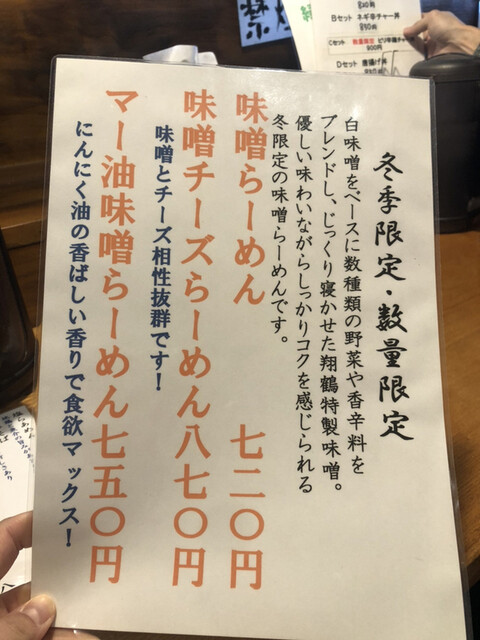 冬季限定・数量限定
白味噌をベースに数種類の野菜や香辛料を
ブレンドし、じっくり寝かせた翔鶴特製味噌。
優しい味わいながらしっかりコクを感じられる
冬限定の味噌らーめんです。
味噌らーめん 七二〇円
味噌チーズらーめん八七〇円
味噌とチーズ相性抜群です!
マー油味噌らーめん七五〇円
にんにく油の香ばしい香りで食欲マックス!
Bセット ネギ辛チャー丼
850円
Cセット 数量限定 ピリ辛鶏チャ
900円
Dセット 唐揚げ丼